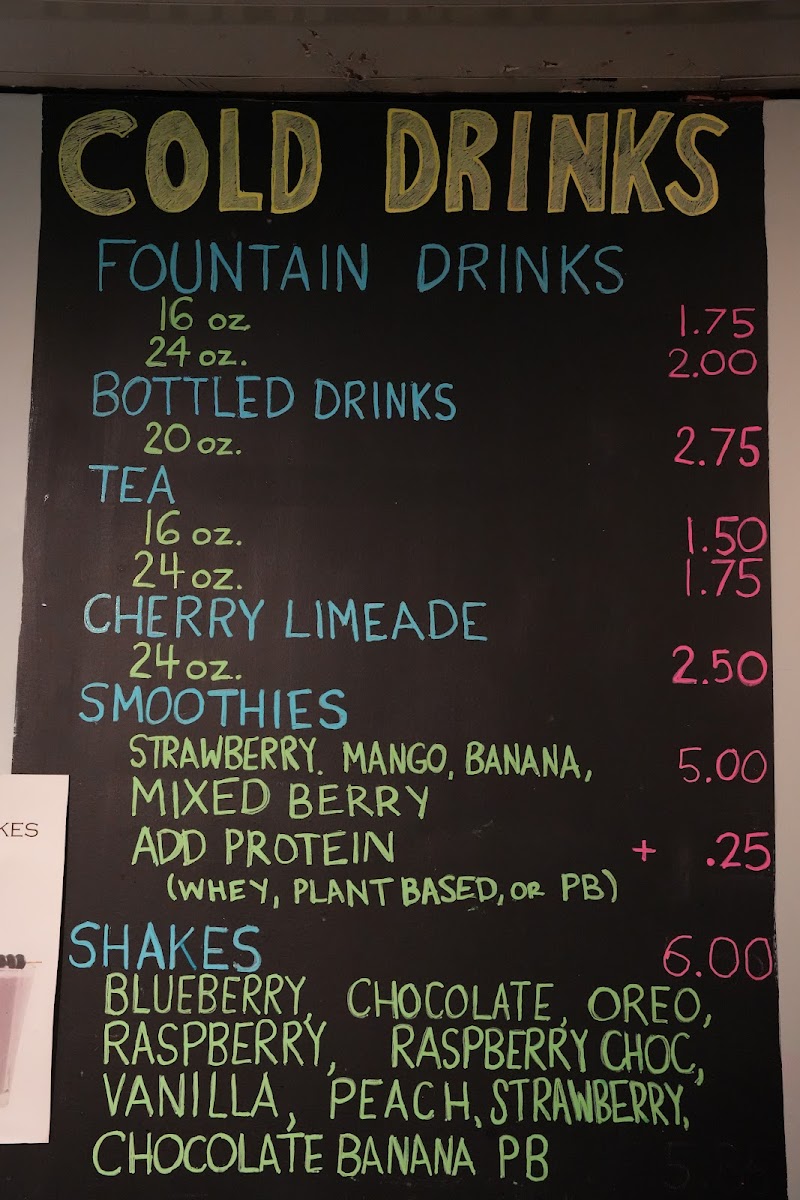 COLD DRINKS
FOUNTAIN DRINKS
16 oz. 1.75
24 oz. 2.00
BOTTLED DRINKS
20 oz. 2.75
TEA
16 oz. 1.50
24 oz. 1.75
CHERRY LIMEADE
24 oz. 2.50
SMOOTHIES
STRAWBERRY. MANGO, BANANA, 5.00
MIXED BERRY
ADD PROTEIN + .25
(WHEY, PLANT BASED, OR PB)
KES
SHAKES 6.00
BLUEBERRY, CHOCOLATE, OREO,
RASPBERRY, RASPBERRY CHOC,
VANILLA, PEACH, STRAWBERRY,
CHOCOLATE BANANA PB